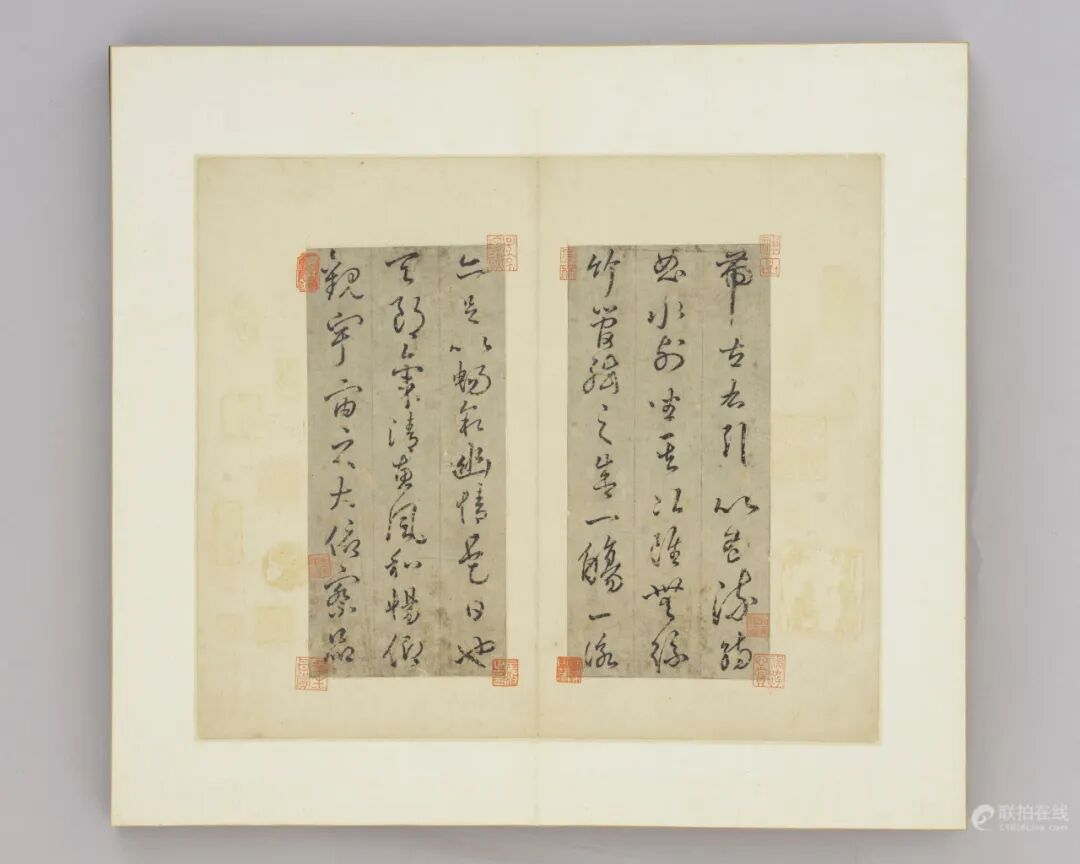 帶左右引以為流觴
曲水列坐其次雖無絲
竹管絃之盛一觴一詠
亦足以暢敘幽情是日也
天朗氣清惠風和暢仰
觀宇宙之大俯察品
联拍在线